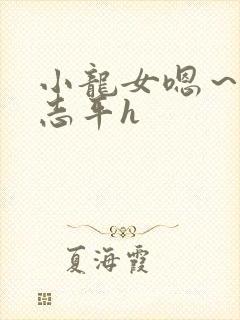 小龍女嗯～
志平h
夏海霞